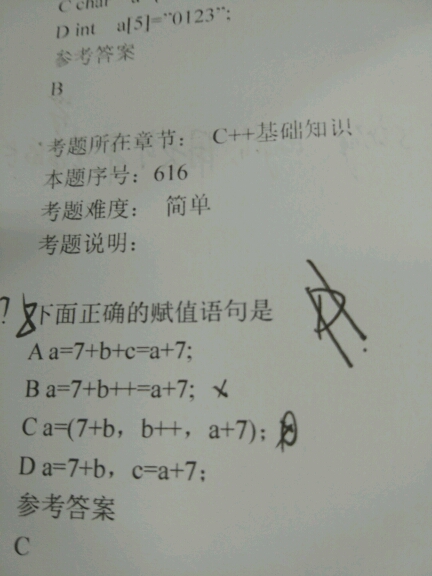 C char a
D int a[5]="0123";
参考答案
B
考题所在章节： C++基础知识
本题序号：616
考题难度： 简单
考题说明：
? 8 下面正确的赋值语句是
A a=7+b+c=a+7;
B a=7+b++=a+7; ×
C a=(7+b，b++，a+7);
D a=7+b，c=a+7;
参考答案
C